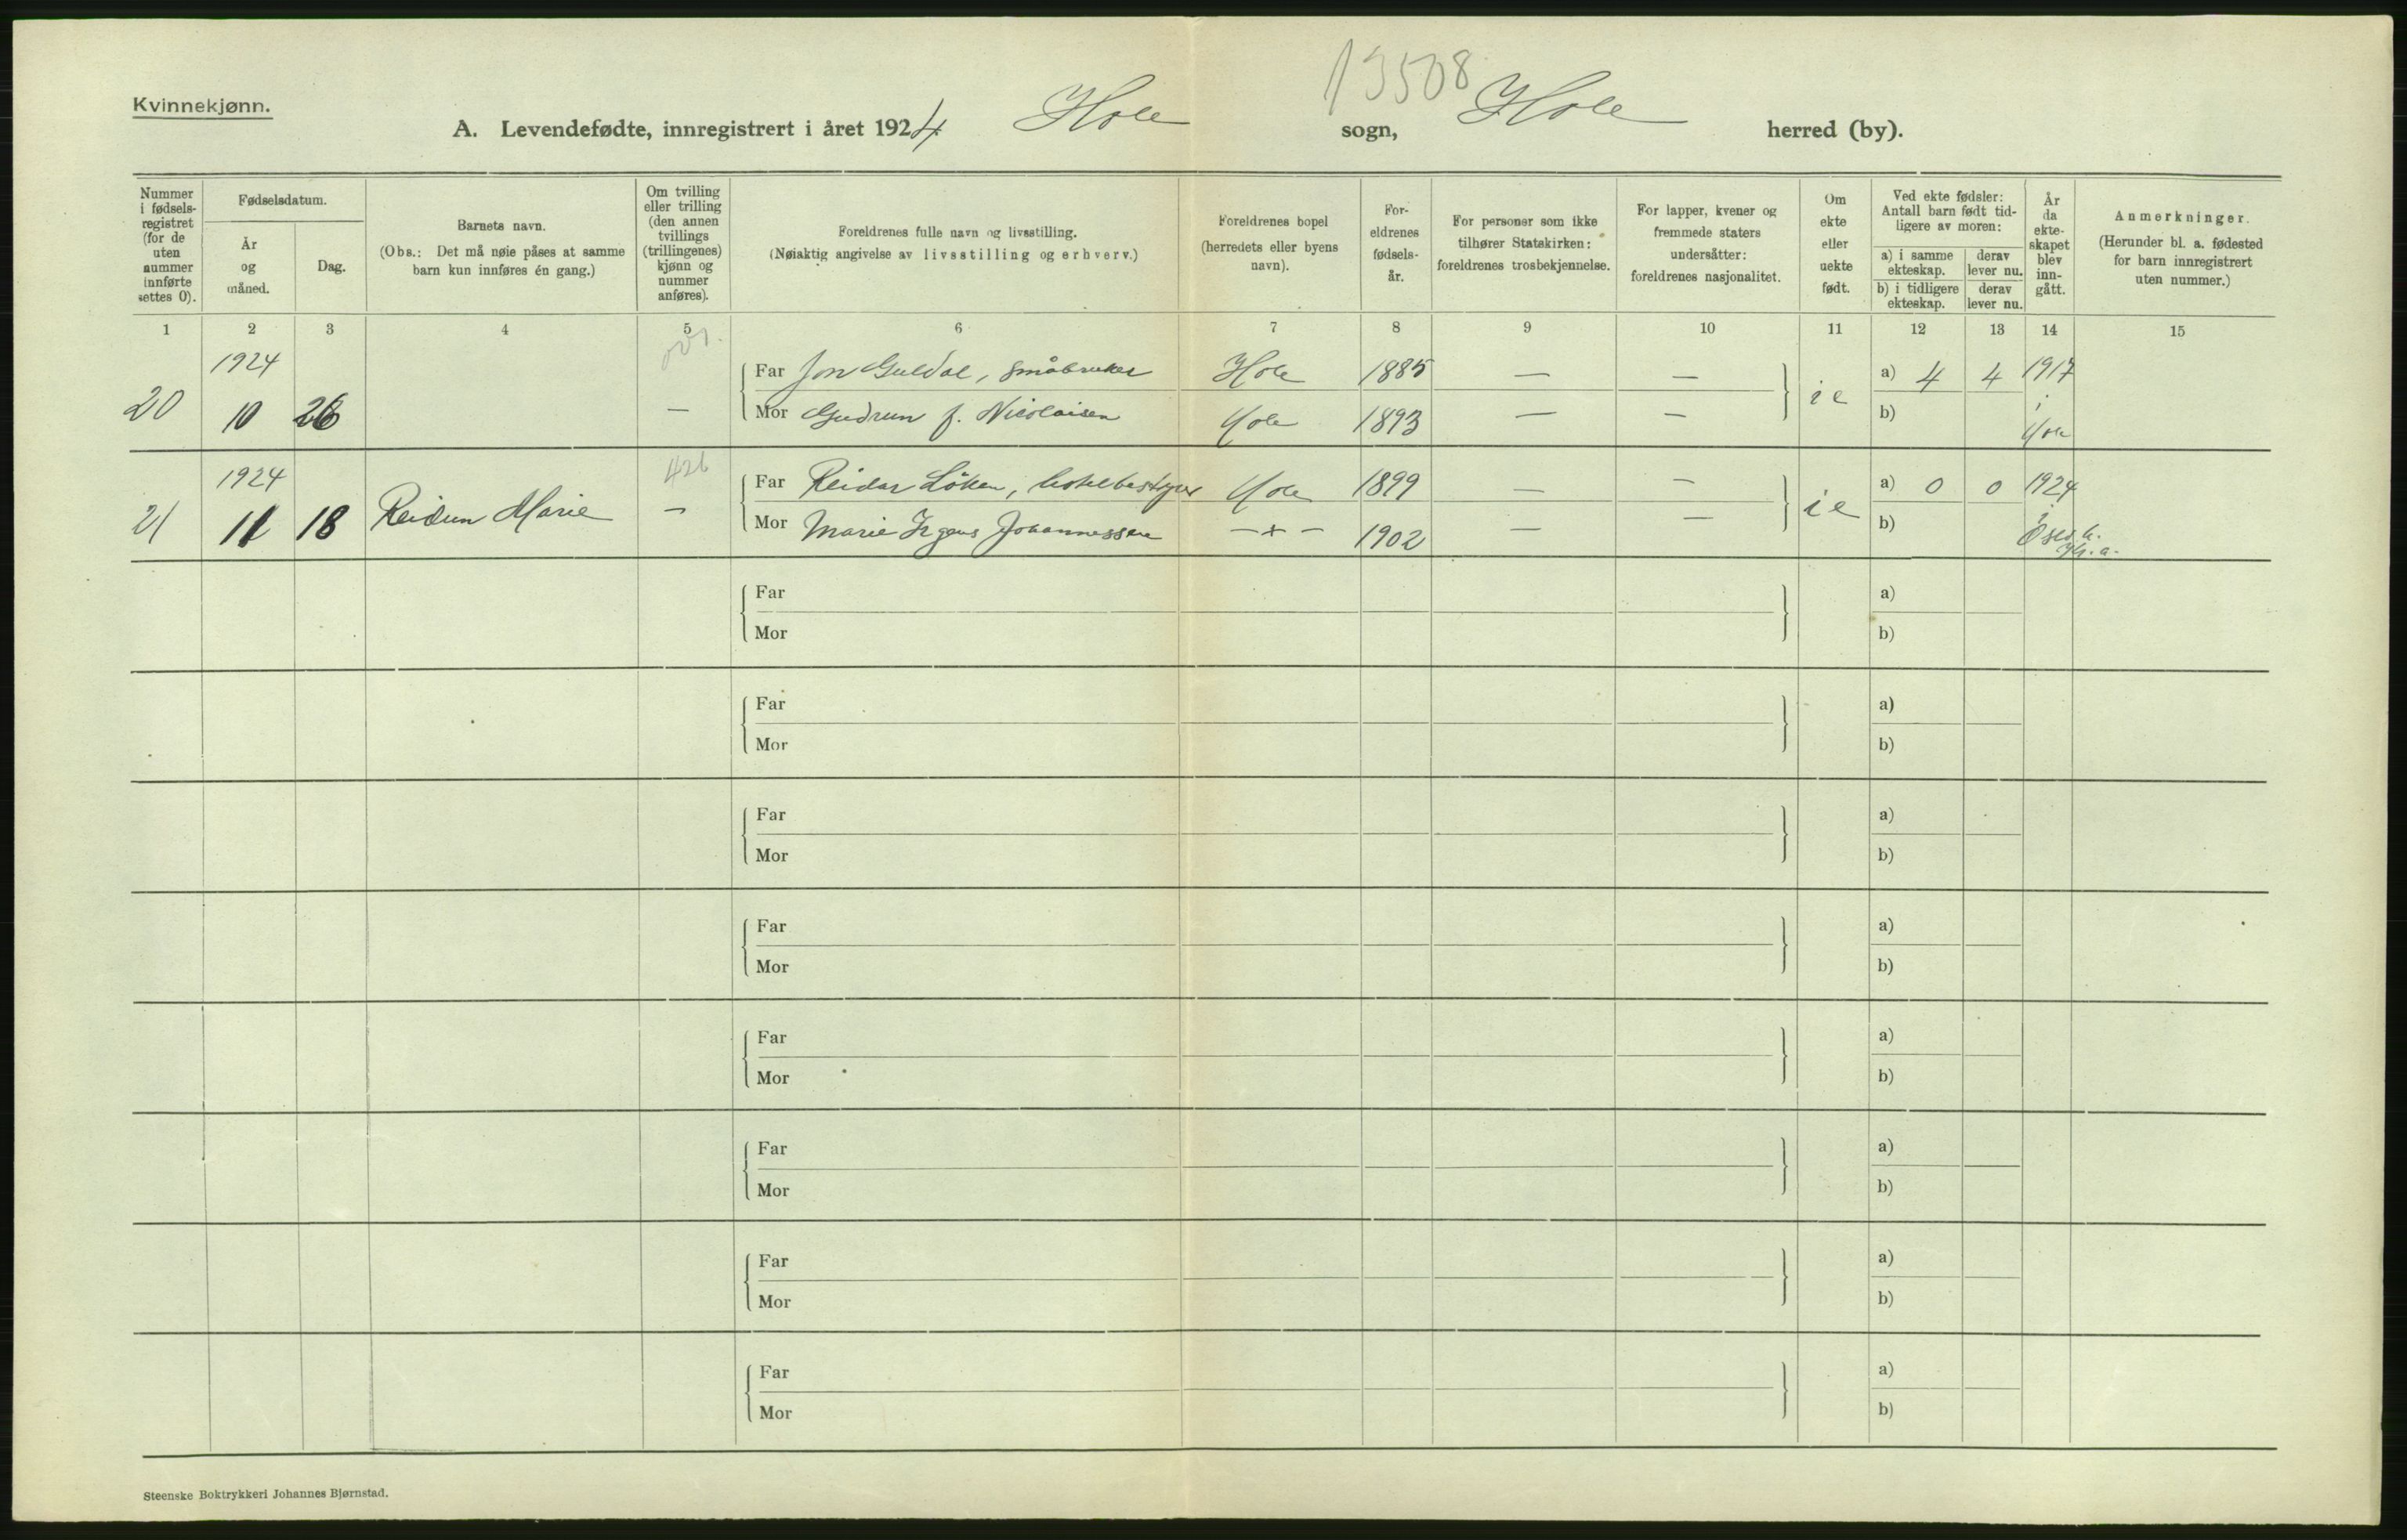 13508
Kvinnekjønn.
A. Levendefødte, innregistrert i året 1924 Hole sogn, Hole herred (by).
Nummer i fødsels-registret (for de uten nummer innførte settes 0).
Fødselsdatum.
År og måned.
Dag.
Barnets navn.
(Obs.: Det må nøie påses at samme barn kun innføres én gang.)
Om tvilling eller trilling (den annen tvillings (trillingenes) kjønn og nummer anføres).
Foreldrenes fulle navn og livsstilling.
(Nøiaktig angivelse av livsstilling og erhverv.)
Foreldrenes bopel (herredets eller byens navn).
For-eldrenes fødsels-år.
For personer som ikke tilhører Statskirken: foreldrenes trosbekjennelse.
For lapper, kvener og fremmede staters undersåtter: foreldrenes nasjonalitet.
Om ekte eller uekte født.
Ved ekte fødsler: Antall barn født tid-ligere av moren:
a) i samme ekteskap.
derav lever nu.
b) i tidligere ekteskap.
derav lever nu.
År da ekte-skapet blev inn-gått.
Anmerkninger.
(Herunder bl. a. fødested for barn innregistrert uten nummer.)
1 2 3 4 5 6 7 8 9 10 11 12 13 14 15
1924 Far Jon Guldal, småbruker Hole 1885 — — a) 4 4 1917
20 10 26 — Mor Gudrun f. Nicolaisen Hole 1893 — — ie b) i Hole
1924 426 Far Reidar Löken, hotelbestyrer Hole 1899 — — a) 0 0 1924
21 11 18 Reidun Marie — Mor Marie Irgens Johannessen — 1902 — — ie b)
Far a)
Mor b)
Far a)
Mor b)
Far a)
Mor b)
Far a)
Mor b)
Far a)
Mor b)
Far a)
Mor b)
Far a)
Mor b)
Far a)
Mor b)
Steenske Boktrykkeri Johannes Bjørnstad.